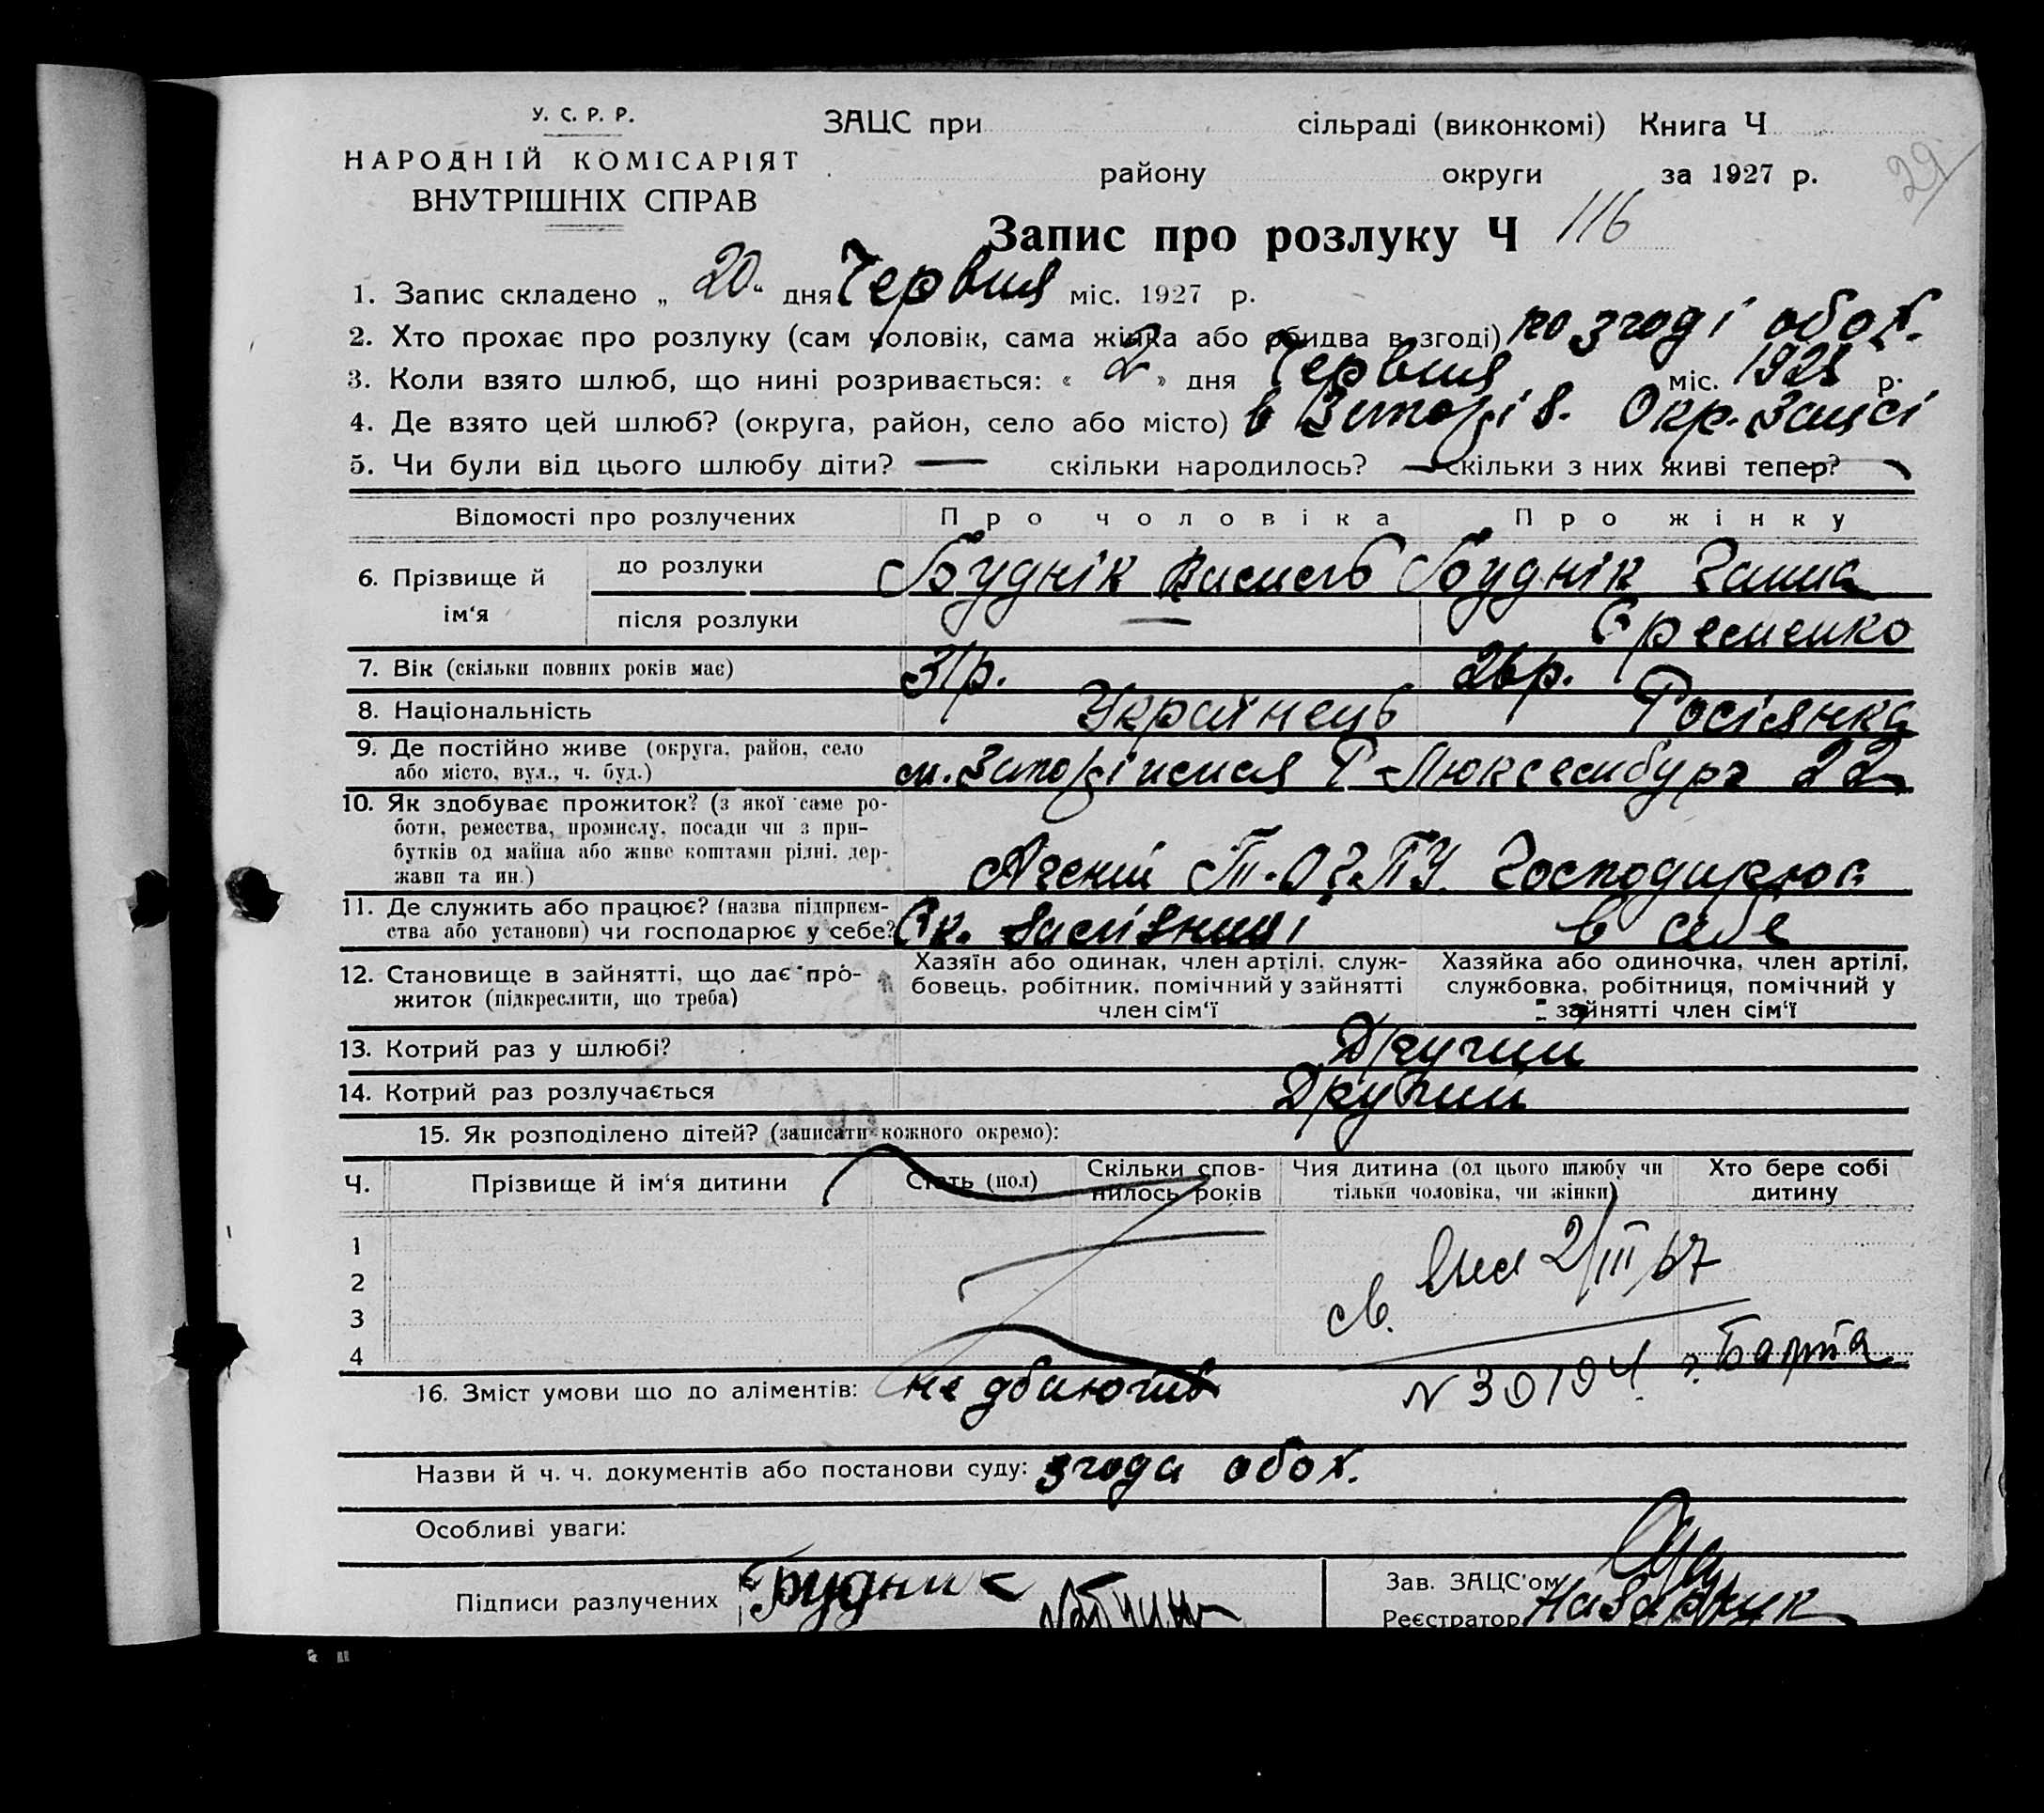 У. С. Р. Р.
НАРОДНІЙ КОМІСАРІЯТ
ВНУТРІШНІХ СПРАВ
ЗАЦС при сільраді (виконкомі) Книга Ч
району округи за 1927 р.
29
Запис про розлуку Ч 116
1. Запис складено „ 20 “ дня Червня міс. 1927 р.
2. Хто прохає про розлуку (сам чоловік, сама жінка або обидва в згоді) по згоді обох.
3. Коли взято шлюб, що нині розривається: « 2 » дня Червня міс. р.
4. Де взято цей шлюб? (округа, район, село або місто) в Запоріз. Окр. Зацсі
5. Чи були від цього шлюбу діти? — скільки народилось? — скільки з них живі тепер? —
Відомості про розлучених Про чоловіка Про жінку
6. Прізвище й ім‘я до розлуки Буднік Василь Буднік Ганна
після розлуки — Єременко
7. Вік (скільки повних років має) 31р. 26р.
8. Національність Українець Росіянка
9. Де постійно живе (округа, район, село
або місто, вул., ч. буд.) м. Запоріжжя Р-Люксембург 22
10. Як здобуває прожиток? (з якої саме ро-
боти, ремества, промислу, посади чи з при-
бутків од майна або живе коштами рідні, дер-
жави та ин.) Агений Господарює
11. Де служить або працює? (назва підприєм-
ства або установи) чи господарює у себе? в себе
12. Становище в зайнятті, що дає про-
житок (підкреслити, що треба)
Хазяїн або одинак, член артілі, служ-
бовець, робітник, помічний у зайнятті
член сім‘ї
Хазяйка або одиночка, член артілі,
службовка, робітниця, помічний у
зайнятті член сім‘ї
13. Котрий раз у шлюбі? Другий
14. Котрий раз розлучається Другий
15. Як розподілено дітей? (записати кожного окремо):
Ч. Прізвище й ім‘я дитини Стать (пол) Скільки спов-
нилось років Чия дитина (од цього шлюбу чи
тільки чоловіка, чи жінки) Хто бере собі
дитину
1
2
3
4
св. 2/III 67
N 30194
16. Зміст умови що до аліментів:
Назви й ч. ч. документів або постанови суду: згода обох.
Особливі уваги:
Підписи розлучених Будник
Зав. ЗАЦС‘ом
Реєстратор